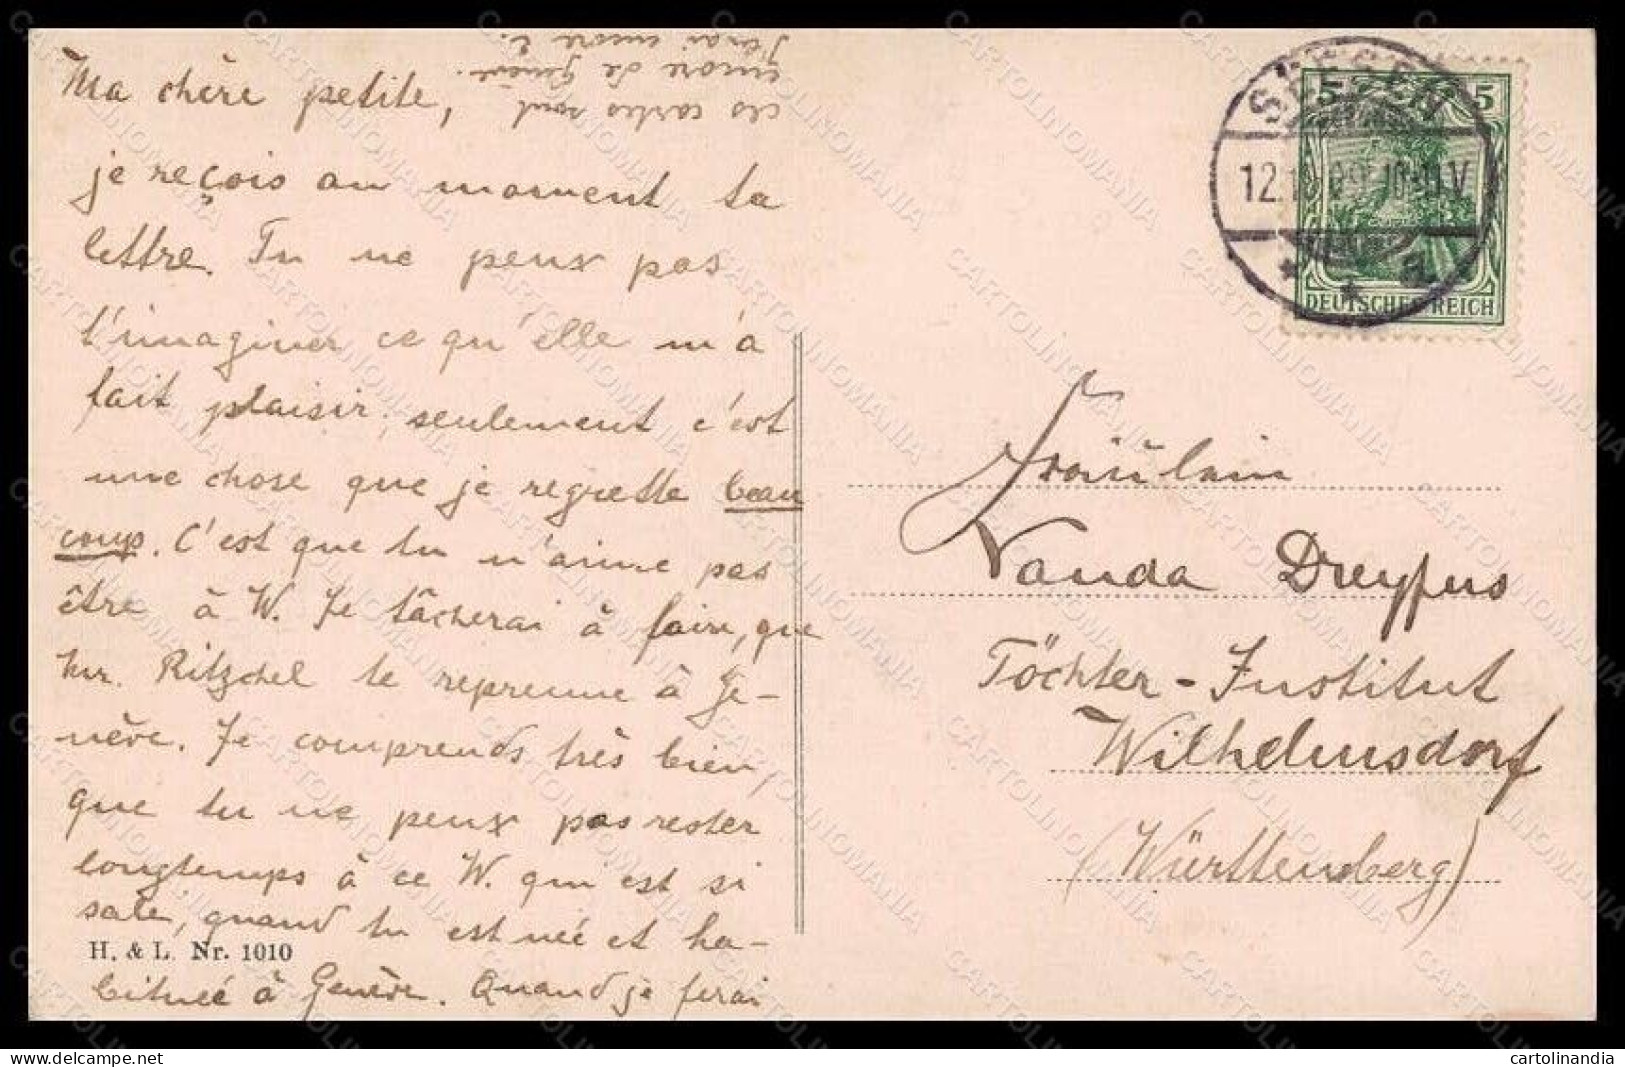 Ma chère petite,
je reçois au moment ta
lettre. Tu ne peux pas
t'imaginer ce qu'elle m'a
fait plaisir, seulement c'est
une chose que je regrette beau
coup. C'est que tu n'aime pas
être à W. Je tâcherai à faire, que
Mr. Ritzchel te reprenne à Ge-
nève. Je comprends très bien,
que tu ne peux pas rester
longtemps à ce W. qui est si
sale, quand tu est née et ha-
bituée à Genève. Quand je ferai
H. & L. Nr. 1010
ces cartes sont
encore de Genève.
J'irai encore
SEESEN
12. 09. 10-11 V
* * a
5 5
DEUTSCHES REICH
Fräulein
Vanda Dreyfus
Töchter-Institut
Wilhelmsdorf
(Württemberg)
CARTOLINOMANIA
delcampe.net
cartolinandia